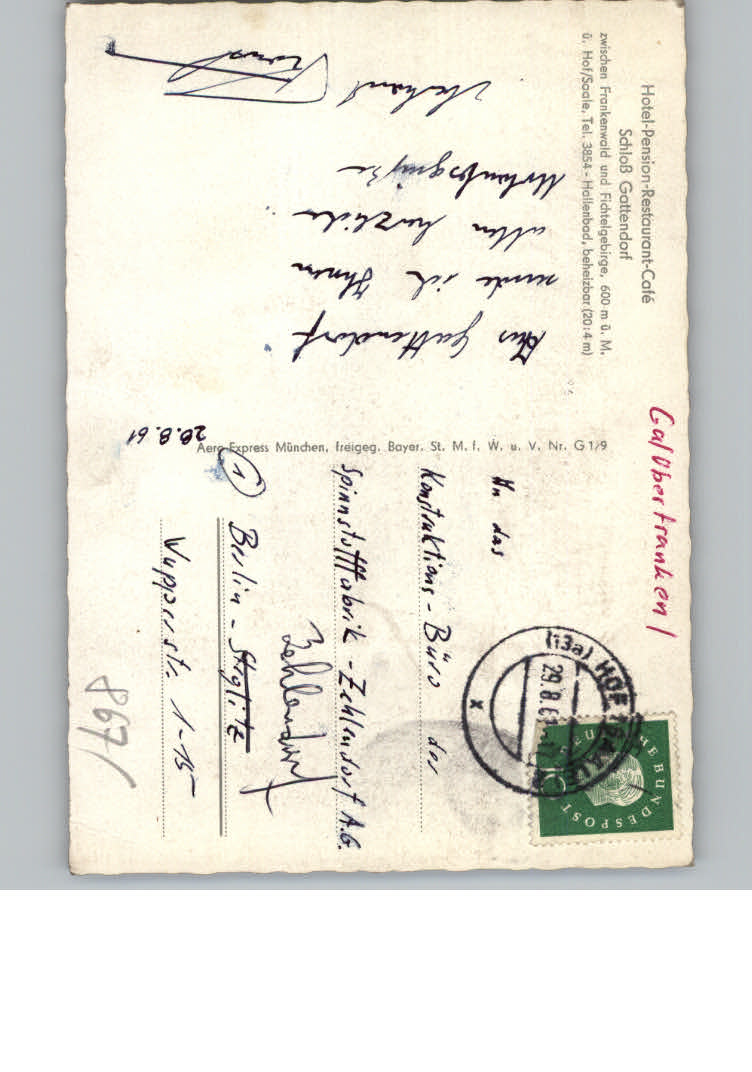 Hotel-Pension-Restaurant-Café
Schloß Gattendorf
zwischen Frankenwald und Fichtelgebirge, 600 m ü. M.
ü. Hof/Saale, Tel. 3854 - Hallenbad, beheizbar (20:4 m)
Aus Gattendorf
sende ich Ihnen
allen herzliche
Urlaubsgrüße
28.8.61
Aero-Express München, freigeg. Bayer. St. M. f. W. u. V. Nr. G 1/9
Ga/Oberfranken/
(13a) HOF (SAALE)
29.8.61
DEUTSCHE BUNDESPOST
An das
Konstruktions-Büro der
Spinnstofffabrik-Zehlendorf A.G.
Zehlendorf
① Berlin-Steglitz
Wupperstr. 1-15